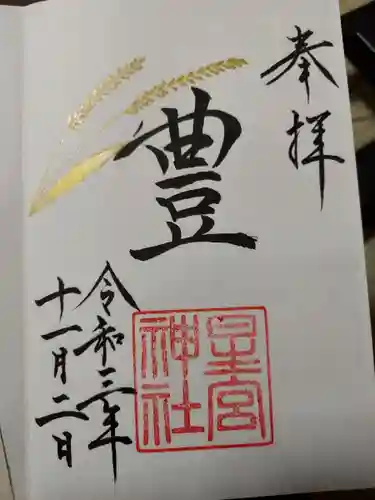 奉拝
豊
星宮
神社
令和三年
十一月二日